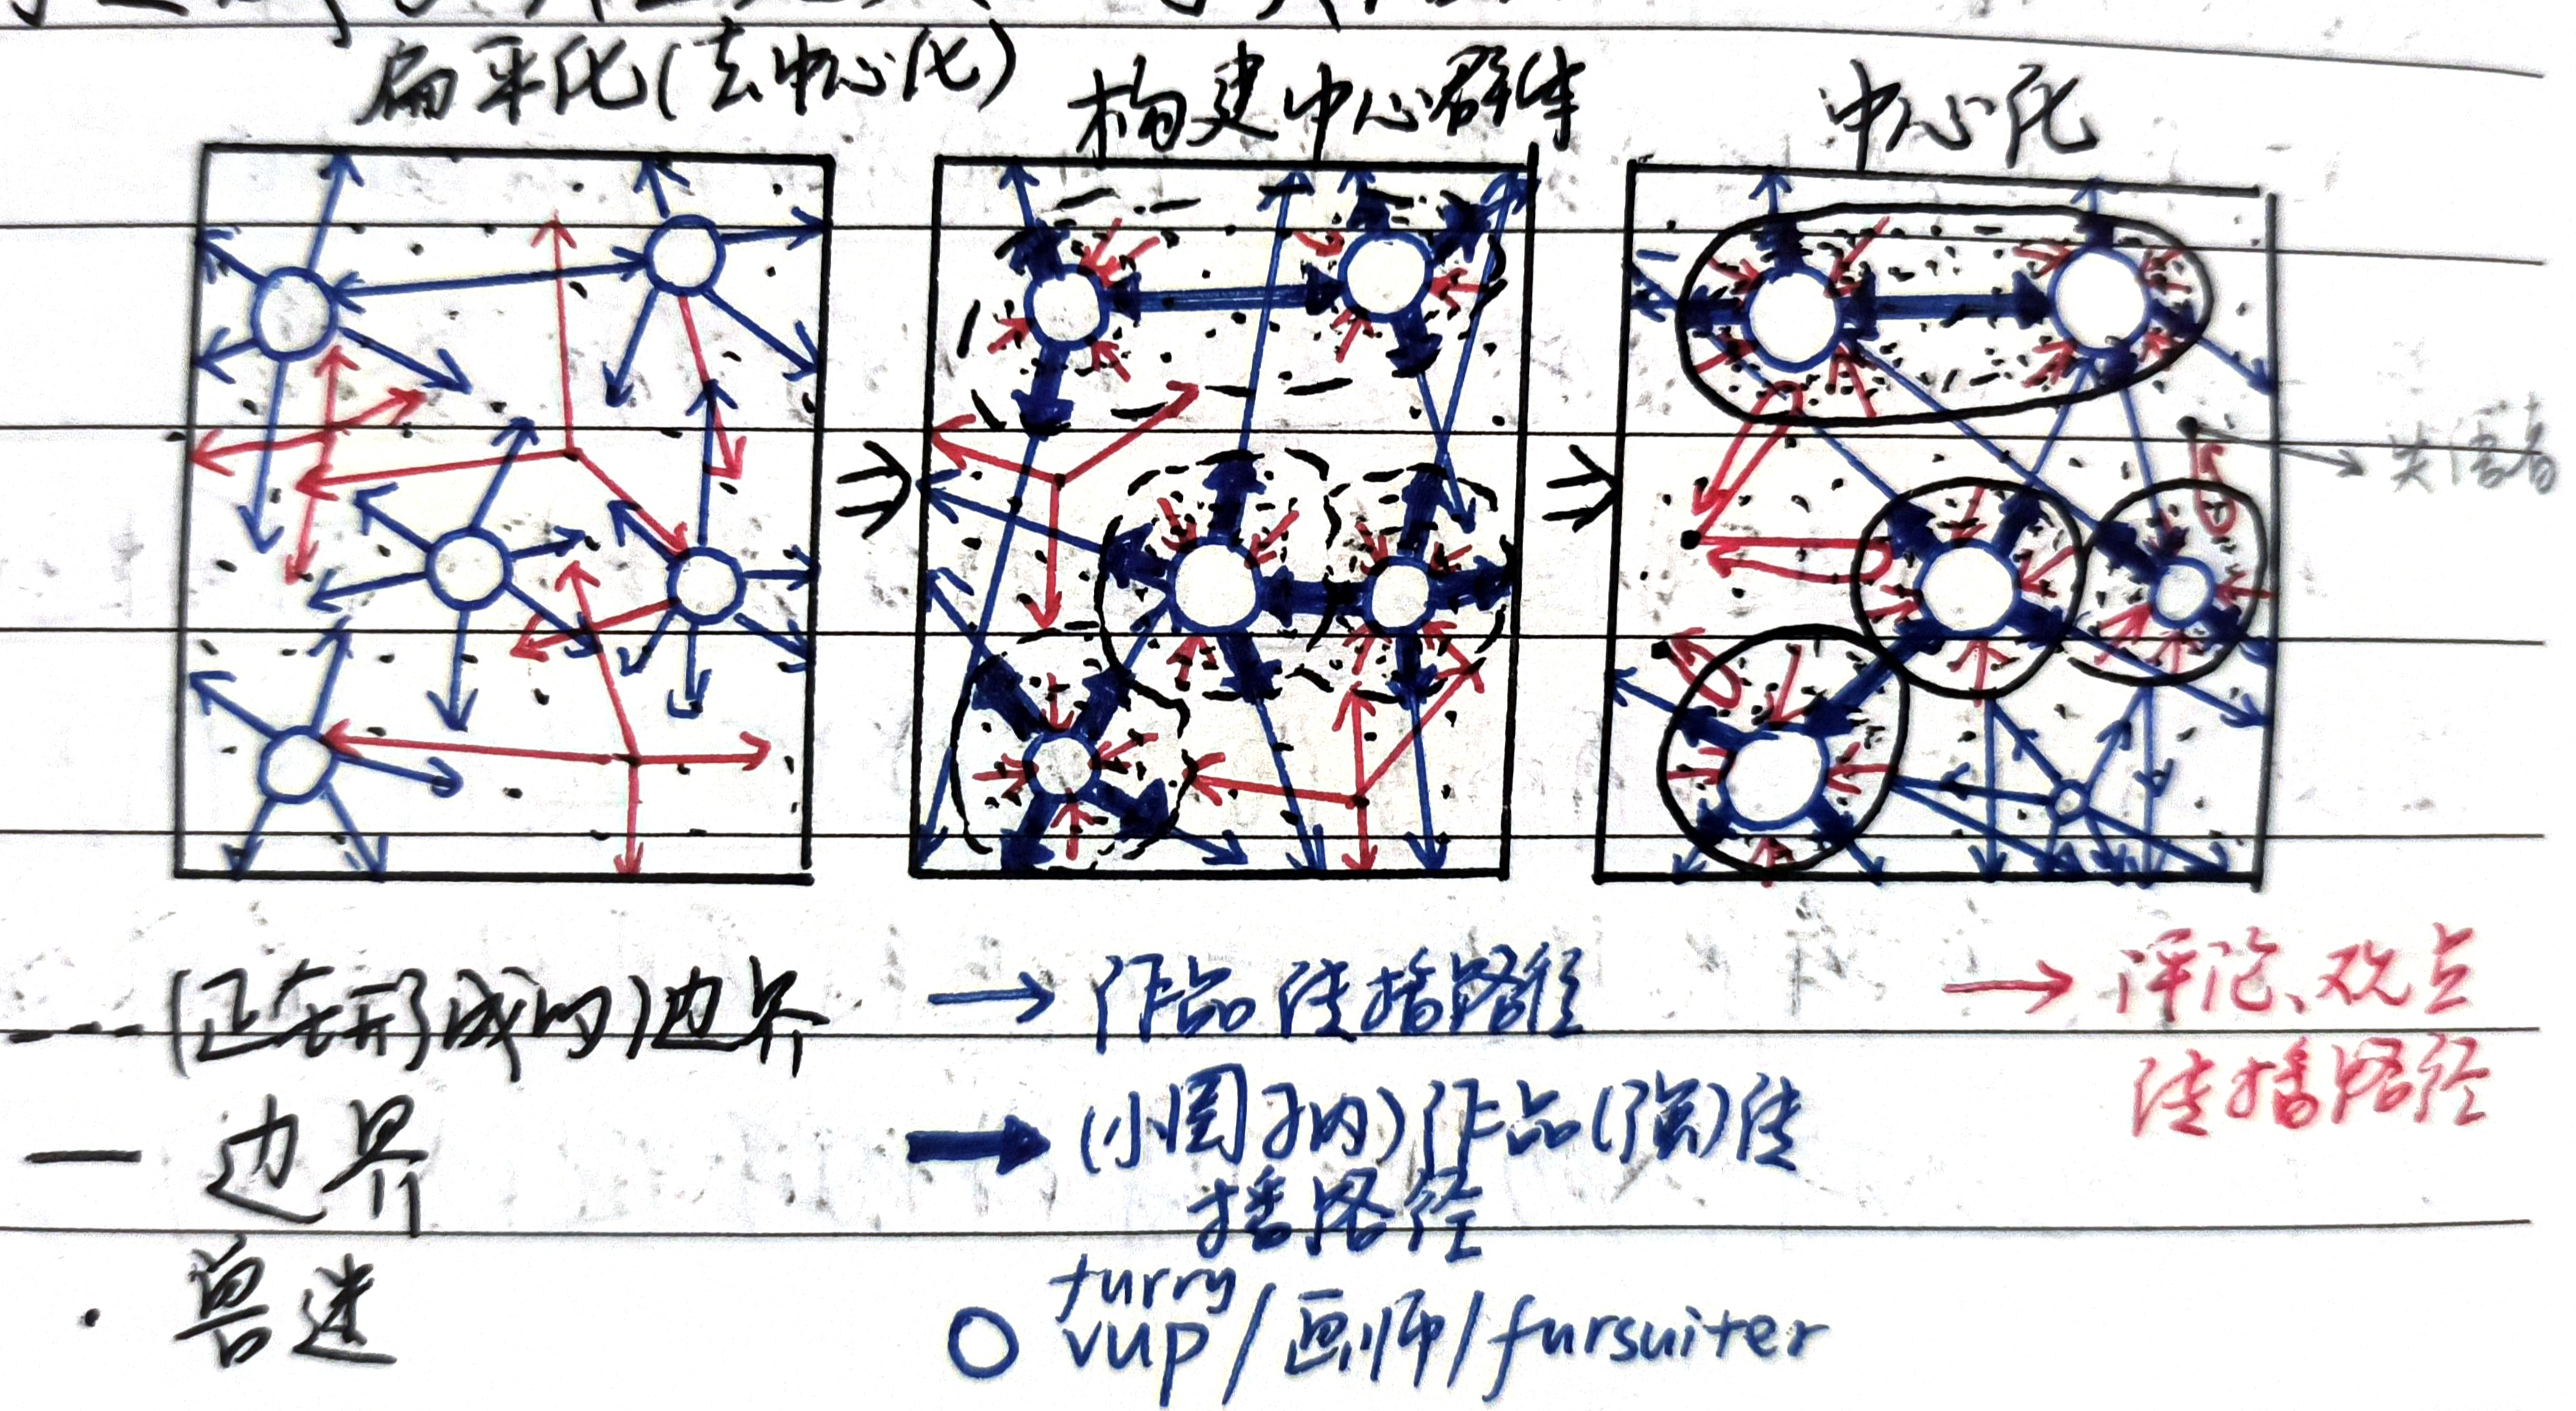 扁平化(去中心化)
构建中心群体
中心化
失语者
---(正在形成的)边界
→ 作品传播路径
→ 评论、观点
传播路径
— 边界
→ (小圈子内)作品(强)传
播路径
· 兽迷
○ furry
vup/画师/fursuiter